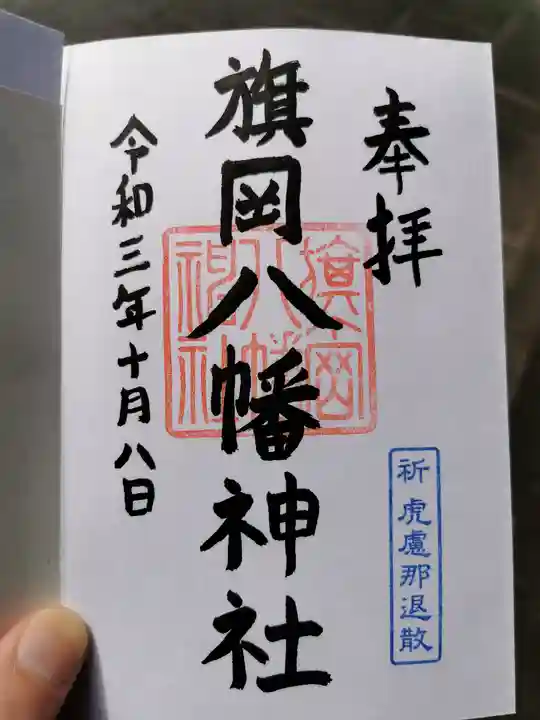 奉拝
旗岡八幡神社
旗岡
八幡
神社
令和三年十月八日
祈 虎慮那退散